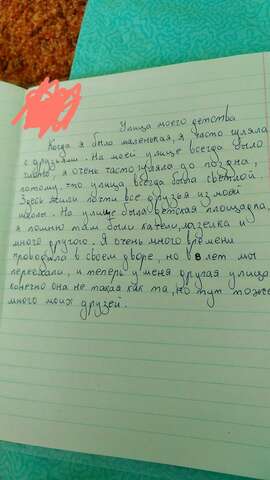 Улица моего детства
Когда я была маленькая, я часто гуляла
с друзьями. На моей улице всегда было
я очень часто гуляла до поздна,
потому-что улица всегда была светлой.
Здесь жили почти все друзья из моей
школы. На улице была детская площадка,
я помню там были качели, и
много другого. Я очень много времени
проводила в своем дворе, но в 8 лет мы
переехали, и теперь у меня другая улица
конечно она не такая как та, но тут тоже
много моих друзей.